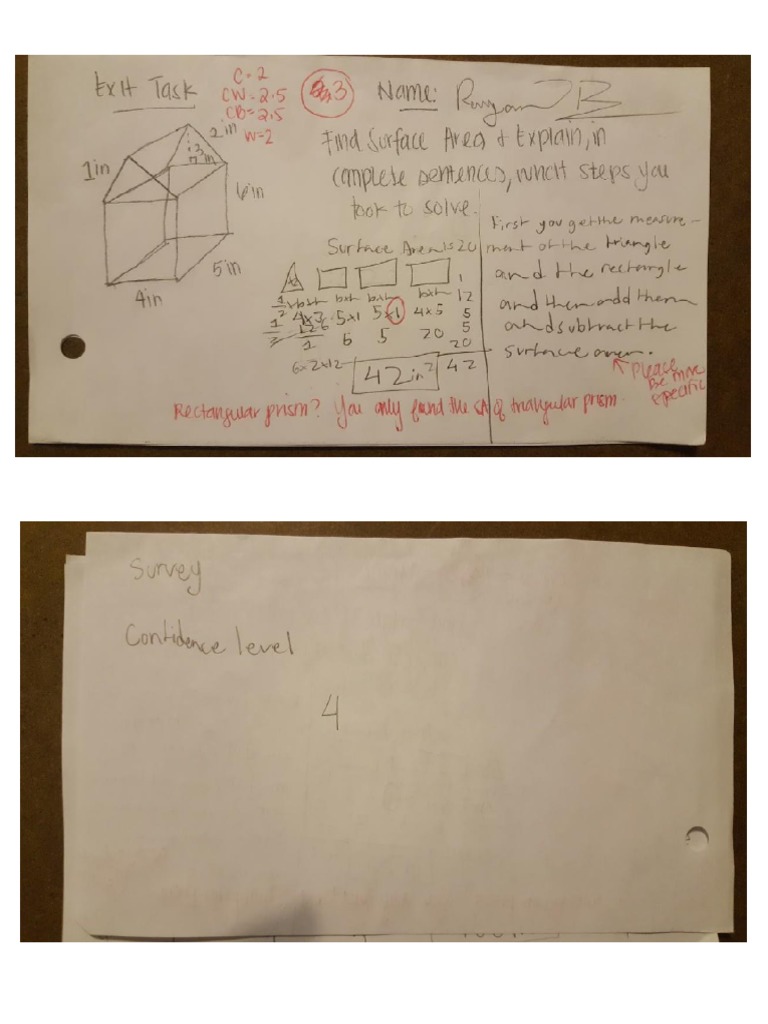 Exit Task
C = 2
CW = 2.5
CB = 2.5
W = 2
3
Name:
B
Find Surface Area & Explain, in
complete sentences, which steps you
took to solve.
1in
2in
3
in
6in
5in
4in
Surface Area is 20
b×h b×h b×h
4×3 5×1 5×1 4×5
6 5 20
1
12
5
5
20
42
6=2×12
42in²
First you get the measure-
ment of the triangle
and the rectangle
and then add them
and subtract the
surface area.
Please
be more
specific
Rectangular prism? You only found the SA of triangular prism.
Survey
Confidence level
4